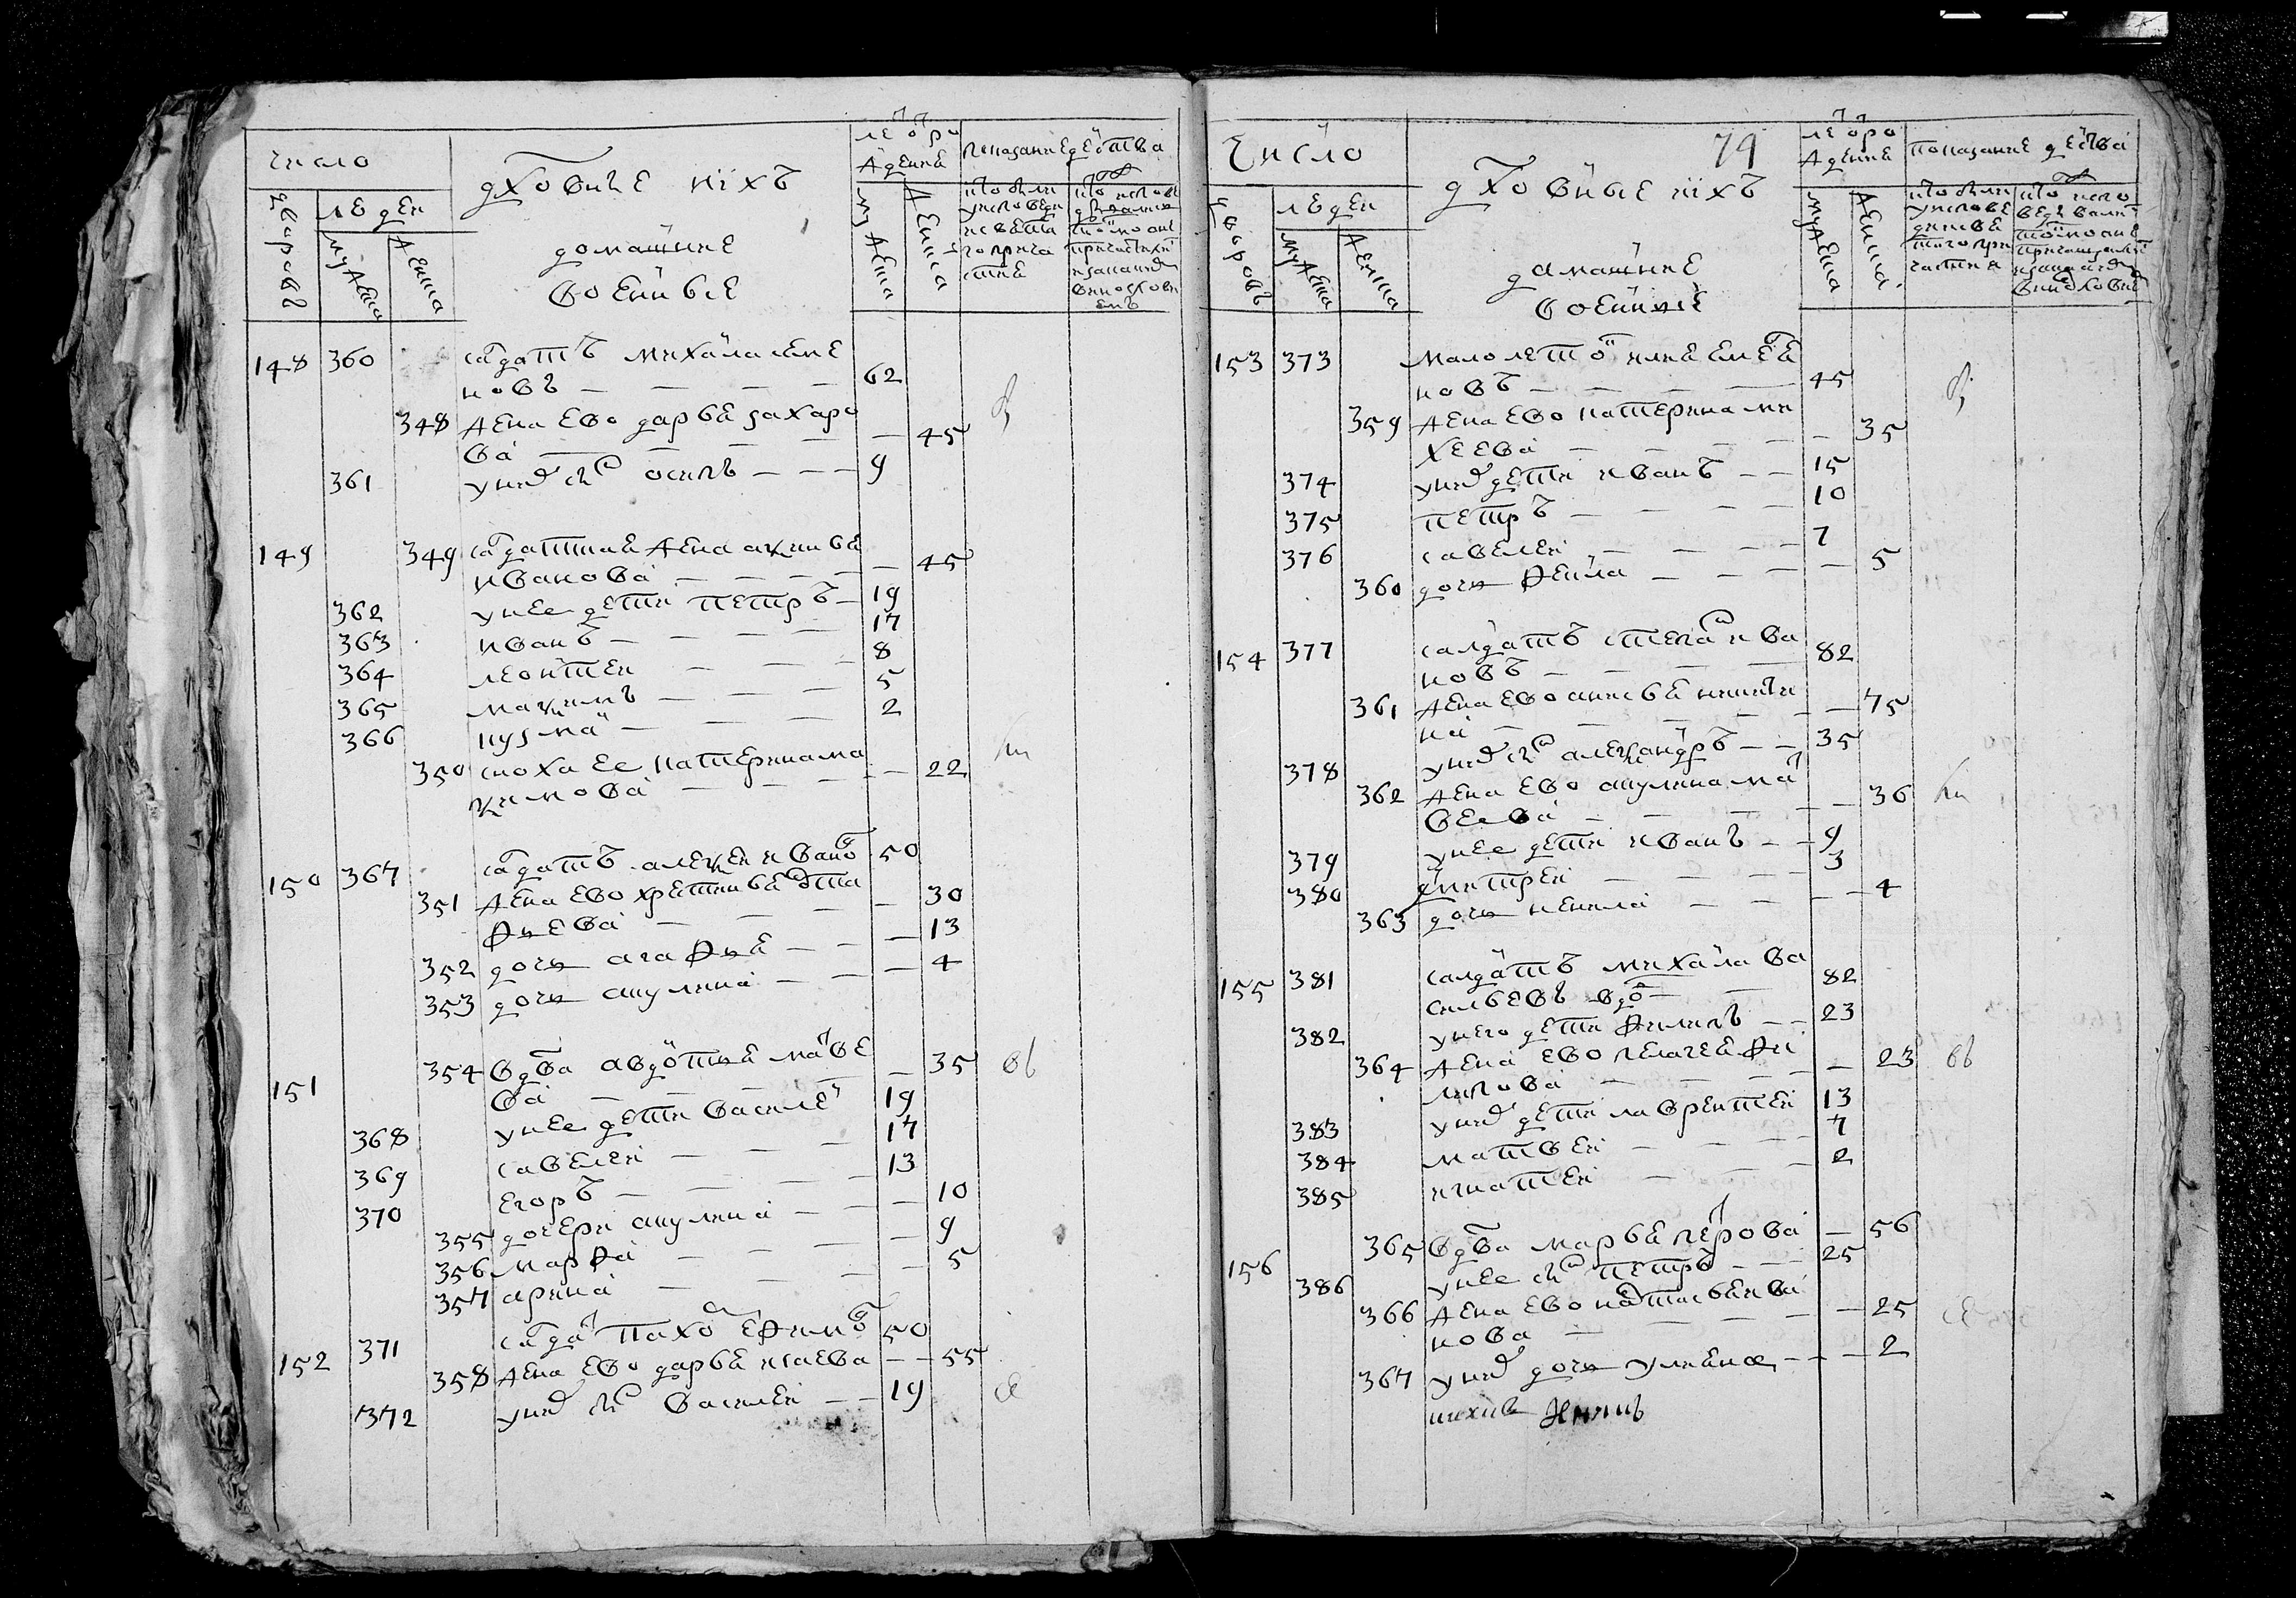 число
дховные ихъ
домашние
военные
ле рож
дения
показание действа
дворовъ
людей
мужеска
женска
мужеска
женска
148 360 салдатъ михайла семе
новъ — — — 62
348 жена ево дарья захаро
ва — — — 45
361 у них сн осипъ — — — 9
149 349 салдатская жена аксинья
иванова — — — 45
362 у нее дети петръ — 19
363 иванъ — — — 17
364 леонтеи — — — 8
365 максимъ — — — 5
366 кузма — — — 2
350 сноха ее катерина ма
ксимова — — — 22
150 367 салдатъ алексеи ивановъ 50
351 жена ево хрестинья
фиева — — — 30
352 дочь агафия — — — 13
353 дочь акулина — — — 4
151 354 вдова авдотья матве
ва — — — 35
368 у нее дети василеи 19
369 савелеи — — — 17
370 егоръ — — — 13
355 дочери акулина — — — 10
356 марфа — — — 9
357 арина — — — 5
152 371 салдат пахом ефимов 50
358 жена ево дарья исаева — — 55
372 у них сн василеи — — 19
79
число
дховные ихъ
домашние
военные
ле рож
дения
показание действа
дворовъ
людей
мужеска
женска
мужеска
женска
153 373 малолетой илья емелья
новъ — — — 45
359 жена ево катерина ми
хеева — — — 35
374 у них дети иванъ — — 15
375 петръ — — — 10
376 савелеи — — — 7
360 дочь фекла — — — 5
154 377 салдатъ степан ива
новъ — — — 82
361 жена ево анисья никити
на — — — 75
378 у них сн александръ — — 35
362 жена ево акулина мат
веева — — — 36
379 у нее дети иванъ — — 9
380 дмитреи — — — 3
363 дочь ненила — — — 4
155 381 салдатъ михайла ва
сильевъ вдов — — 82
382 у него дети филипъ — — 23
364 жена ево пелагея фи
липова — — — 23
383 у них дети лаврентеи 13
384 матвеи — — — 7
385 игнатеи — — — 2
156 365 вдова марья петрова — 56
386 у нее сн петръ — — — 25
366 жена ево настасья ива
нова — — — 25
367 у них дочь ульяна — — — 2